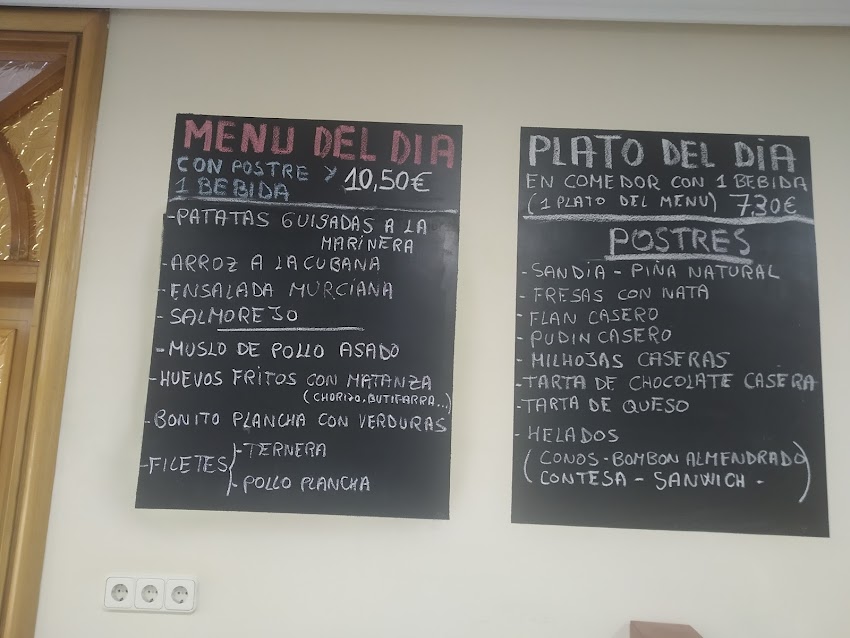 MENU DEL DIA
CON POSTRE Y 10,50€
1 BEBIDA
-PATATAS GUISADAS A LA
MARINERA
-ARROZ A LA CUBANA
-ENSALADA MURCIANA
-SALMOREJO
-MUSLO DE POLLO ASADO
-HUEVOS FRITOS CON MATANZA
(CHORIZO, BUTIFARRA...)
-BONITO PLANCHA CON VERDURAS
-FILETES{-TERNERA
-POLLO PLANCHA
PLATO DEL DIA
EN COMEDOR CON 1 BEBIDA
(1 PLATO DEL MENU) 7,30€
POSTRES
-SANDIA - PIÑA NATURAL
-FRESAS CON NATA
-FLAN CASERO
-PUDIN CASERO
-MILHOJAS CASERAS
-TARTA DE CHOCOLATE CASERA
-TARTA DE QUESO
-HELADOS
(CONOS-BOMBON ALMENDRADO
CONTESA - SANWICH -)